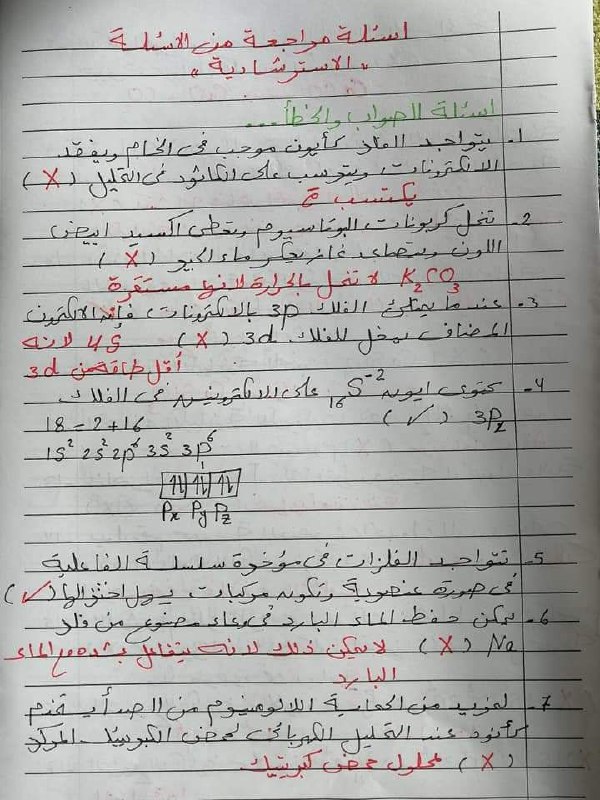 اسئلة مراجعة من الاسئلة
"الاسترشادية"
اسئلة الصواب والخطأ...
1- يتواجد الفلز كأيون موجب في الخام ويفقد
الالكترونات ويترسب على الكاثود في التحليل (X)
يكتسب ج
2- تنحل كربونات البوتاسيوم وتعطى اكسيد ابيض
اللون ويتصاعد غاز يعكر ماء الجير (X)
K2CO3 لا تنحل بالحرارة لانها مستقرة
3- عندما يمتلئ الفلك 3p بالالكترونات فإن الالكترون
المضاف يدخل للفلك 3d (X) 4s لانه
أقل طاقة من 3d
4- يحتوى ايون 16S-2 على الالكترونين في الفلك
3Pz (✓) 18 = 2+16
1S2 2S2 2p6 3S2 3p6
⥮ ⥮ ⥮
Px Py Pz
5- تتواجد الفلزات في مؤخرة سلسلة الفاعلية
في صورة عنصرية وتكون مركبات يسهل اختزالها (✓)
6- يمكن حفظ الماء البارد في وعاء مصنوع من فلز
Na (X) لا يمكن ذلك لانه يتفاعل بشده مع الماء
البارد
7- لمزيد من الحماية اللالومنيوم من الصدأ يستخدم
كأنود عند التحليل الكهربائى لحمض الكبريتيك المركز
(X) محلول حمض كبريتيك